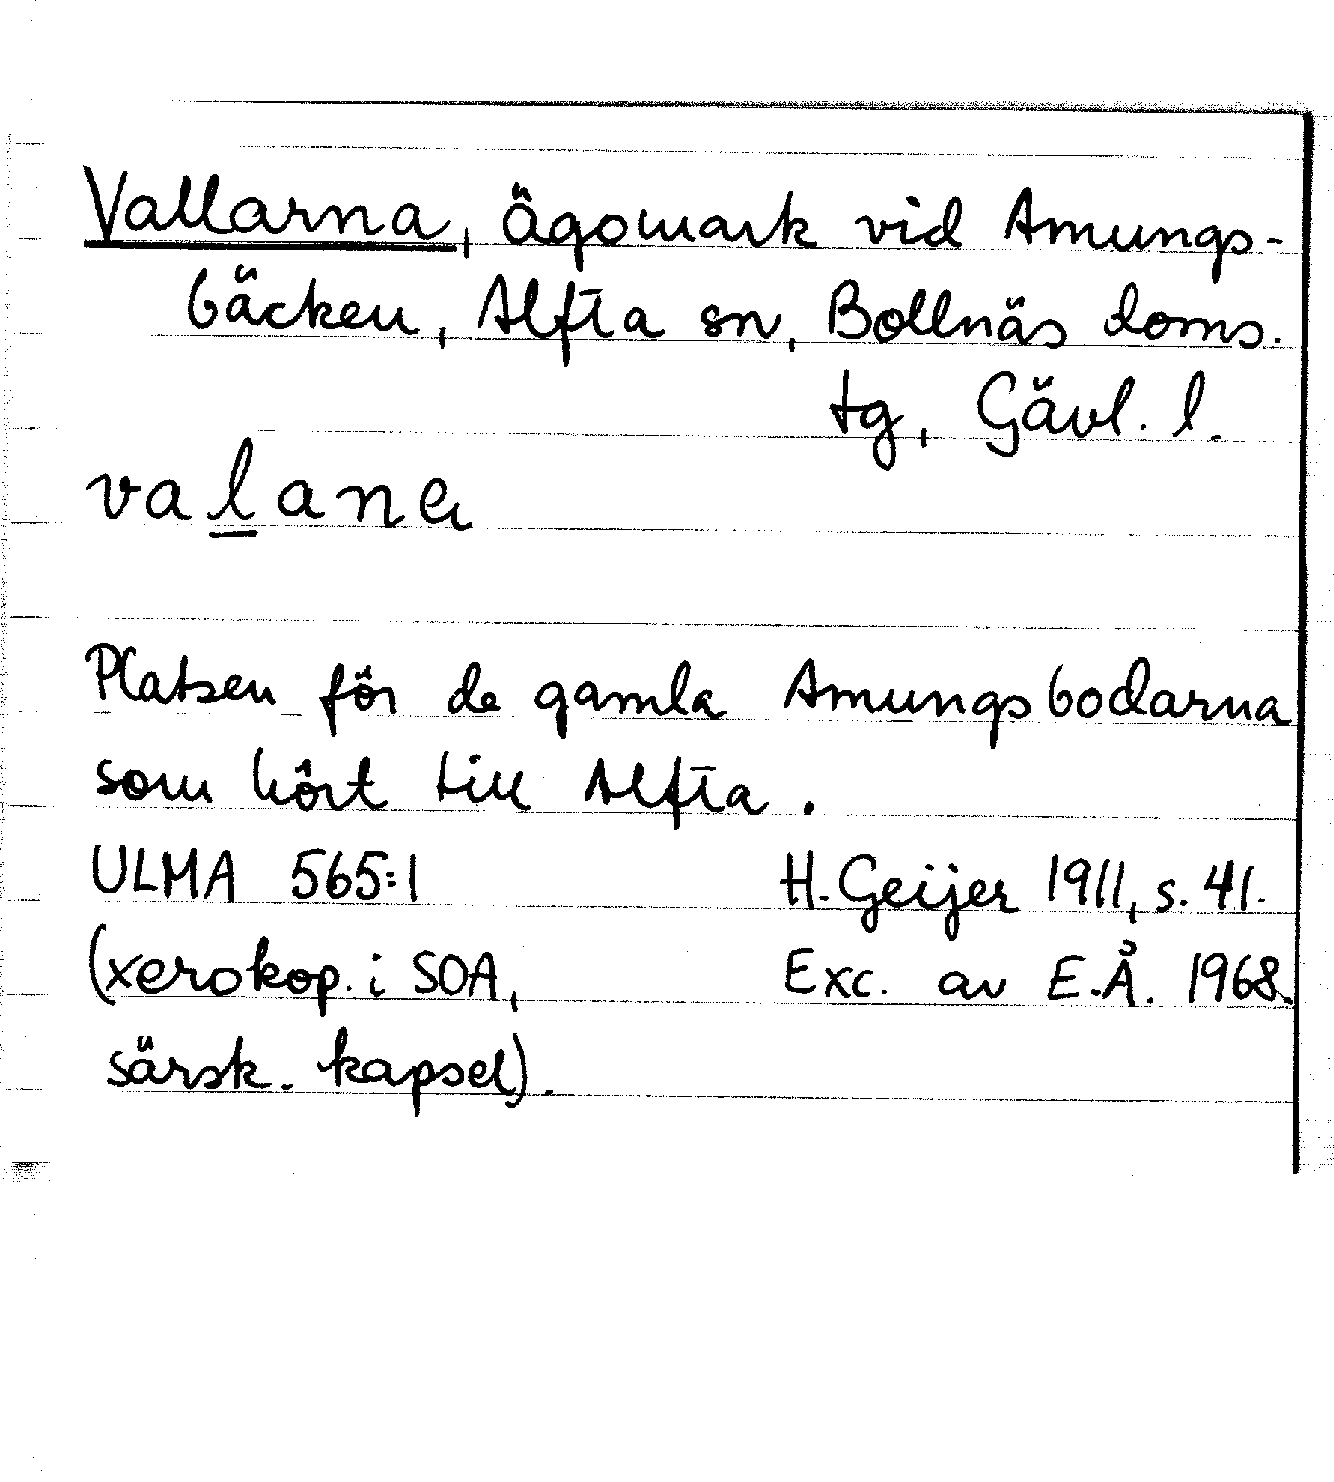 Vallarna, ägomark vid Amungs-
bäcken, Alfta sn, Bollnäs doms.
tg, Gävl. l.
valana
Platsen för de gamla Amungsbodarna
som hört till Alfta.
ULMA 565:1 H. Geijer 1911, s. 41.
(xerokop. i SOA, Exc. av E.Å. 1968.
särsk. kapsel).